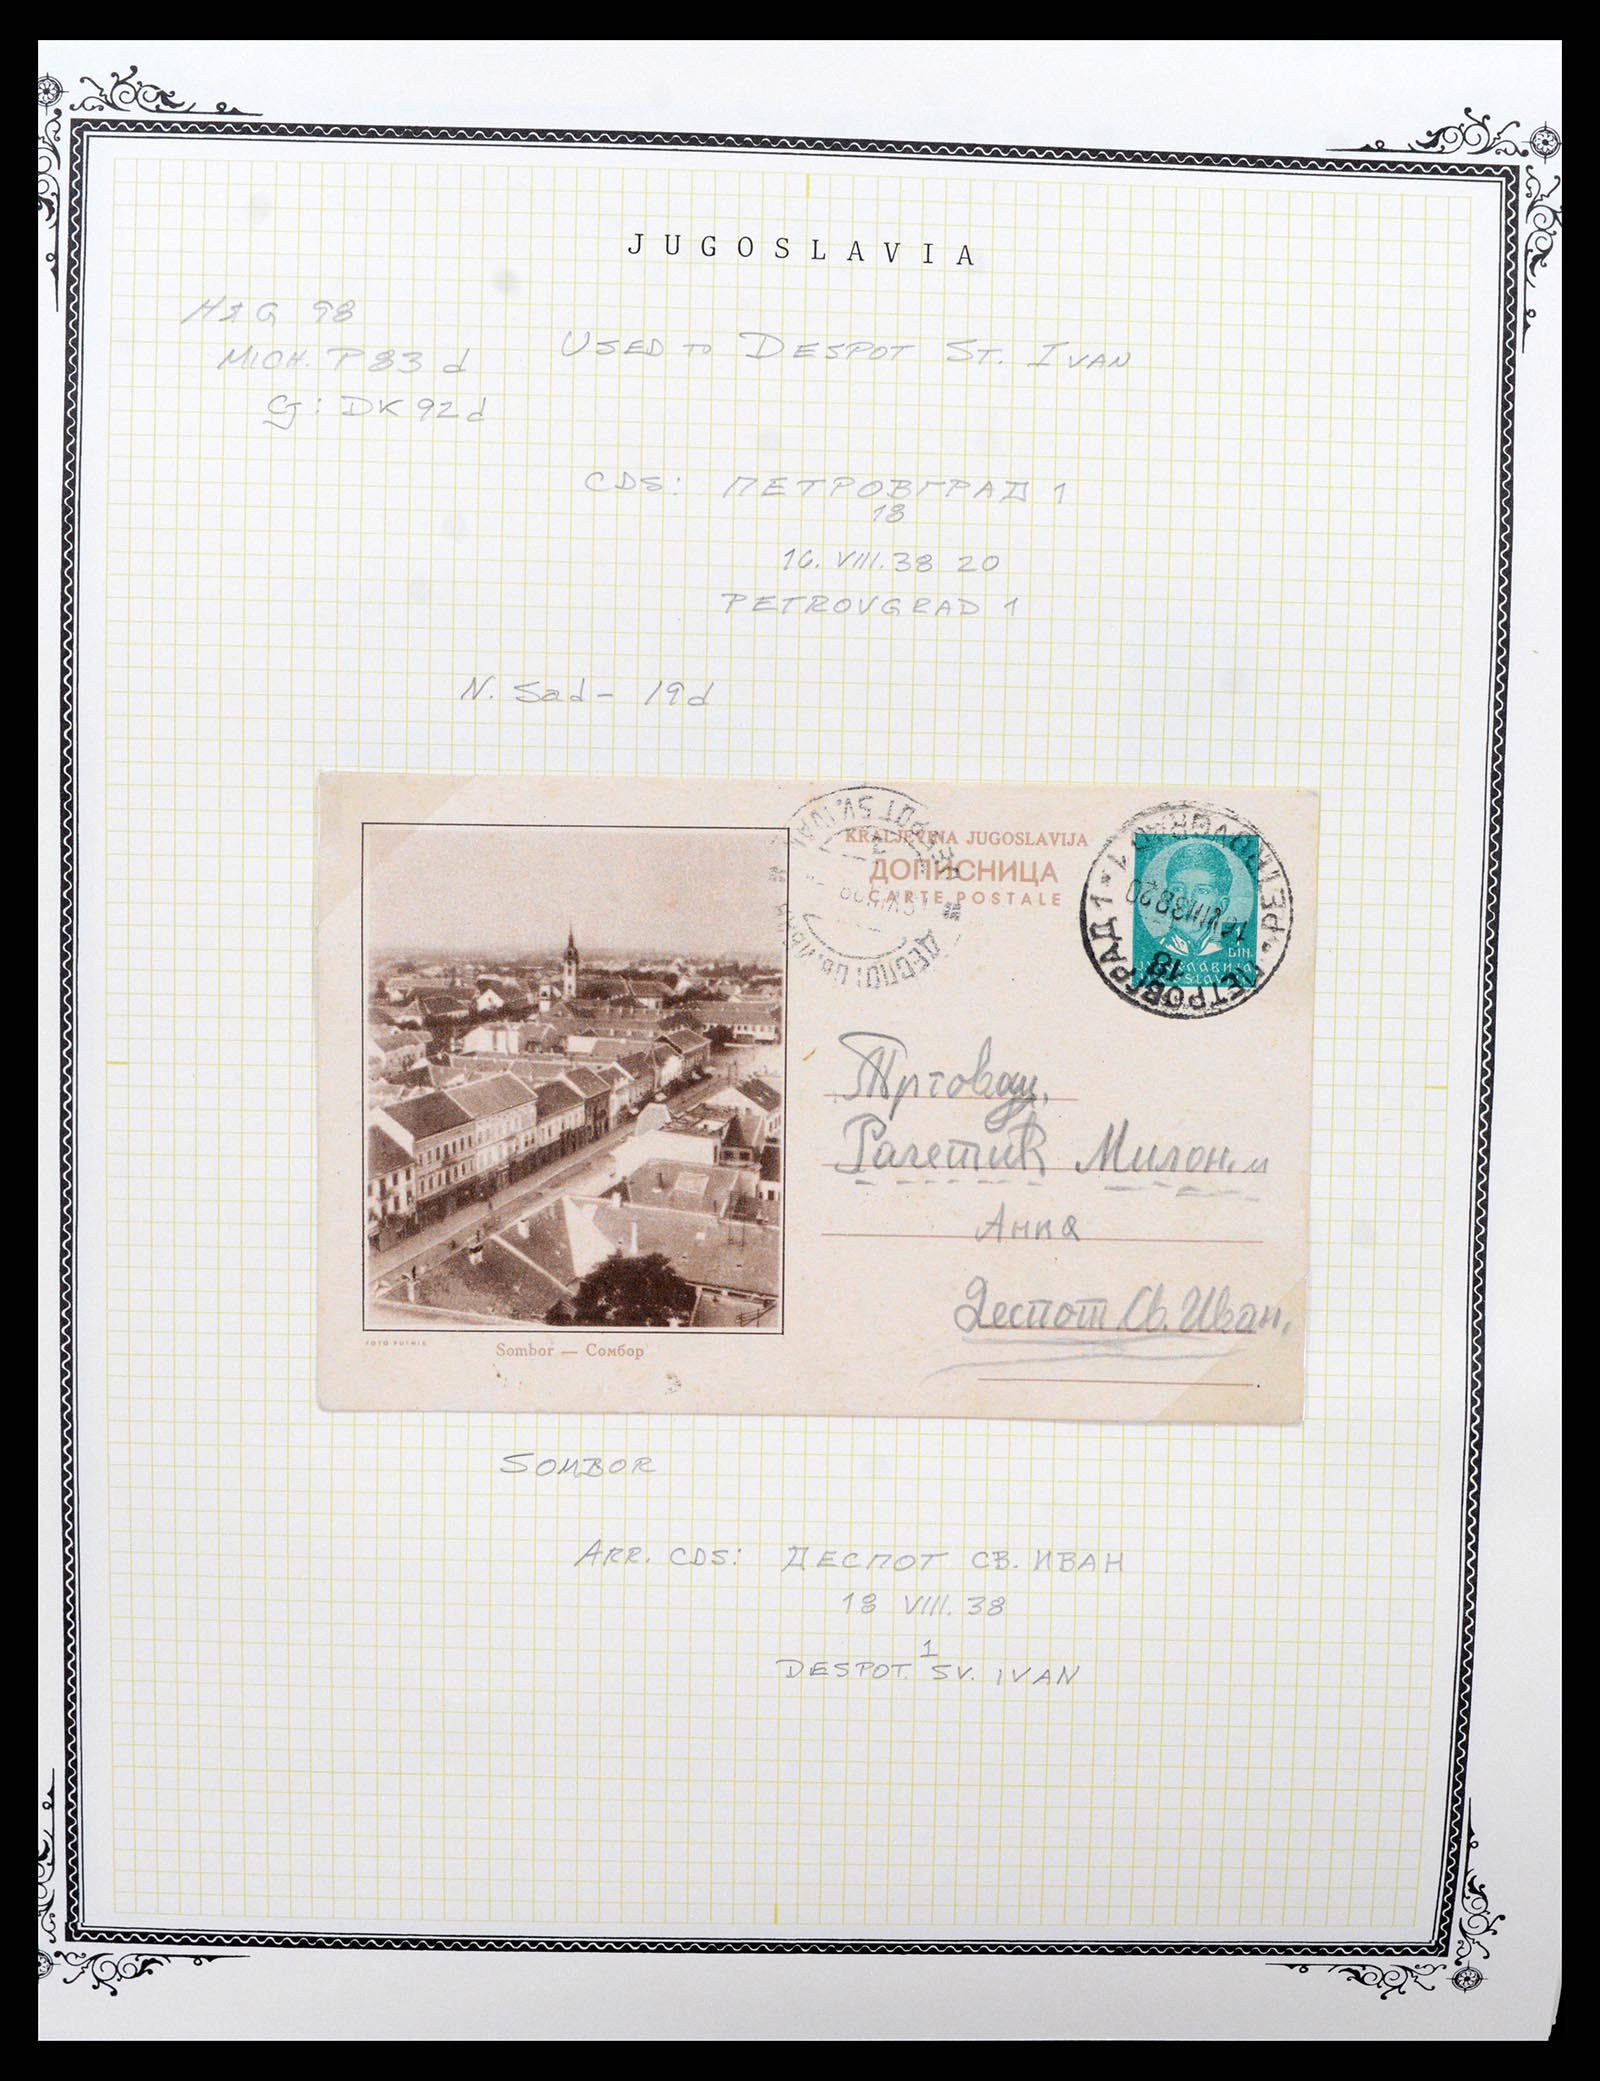 JUGOSLAVIA
H&G 98
MICH. P83d
CJ: DK92d
USED TO DESPOT ST. IVAN
CDS: ПЕТРОВГРАД 1
18
16. VIII. 38 20
PETROVGRAD 1
N. Sad - 19d
KRALJEVINA JUGOSLAVIJA
ДОПИСНИЦА
CARTE POSTALE
DESPOT SV. IVAN
ДЕСПОТ СВ. ИВАН
PETROVGRAD 1
16.VIII.38 20
18
ПЕТРОВГРАД 1
ДИН.
Милон. и
Анка
Деспот Св. Иван,
FOTO PUTNIK
Sombor — Сомбор
SOMBOR
ARR. CDS: ДЕСПОТ СВ. ИВАН
18 VIII. 38
1
DESPOT. SV. IVAN